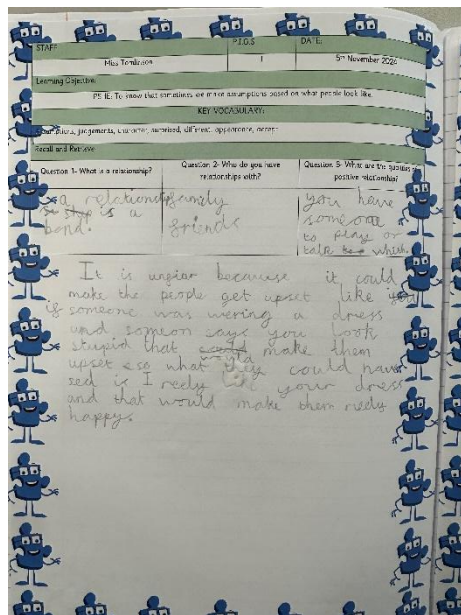 STAFF P.I.G.S DATE:
Miss Tomlinson 1 5th November 2024
Learning Objective:
PSHE: To know that sometimes we make assumptions based on what people look like.
KEY VOCABULARY:
Assumptions, judgements, character, surprised, different, appearance, accept
Recall and Retrieve
Question 1- What is a relationship? Question 2- Who do you have relationships with? Question 3- What are the qualities of positive relationship?
a relationship
is a
bond.
family
friends
you have
someone
to play or
talk
It is unfiar because it could
make the people get upset like
if someone was wering a dress
and someon says you look
stupid that make them
upset so what they could have
sed is I reely your dress
and that would make them reely
happy.